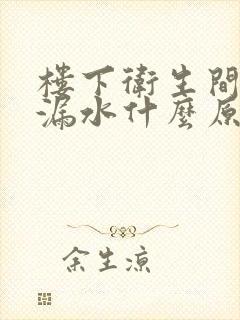 樓下衛生間
漏水什麼原
余生涼